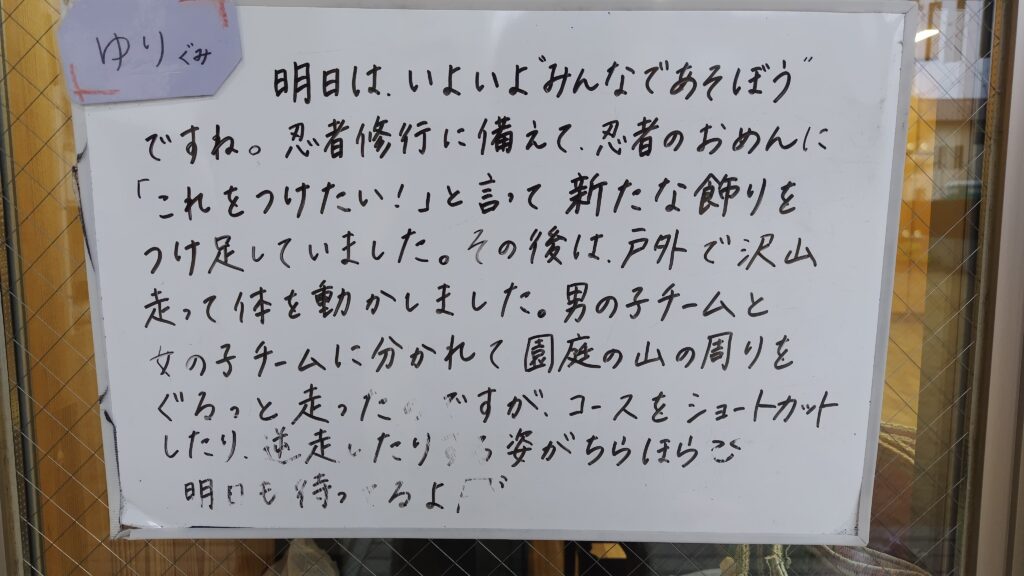 ゆりぐみ
明日は、いよいよ"みんなであそぼう"
ですね。忍者修行に備えて、忍者のおめんに
「これをつけたい!」と言って新たな飾りを
つけ足していました。その後は、戸外で沢山
走って体を動かしました。男の子チームと
女の子チームに分かれて園庭の山の周りを
ぐるっと走ったのですが、コースをショートカット
したり、逆走したりする姿がちらほら
明日も待ってるよ